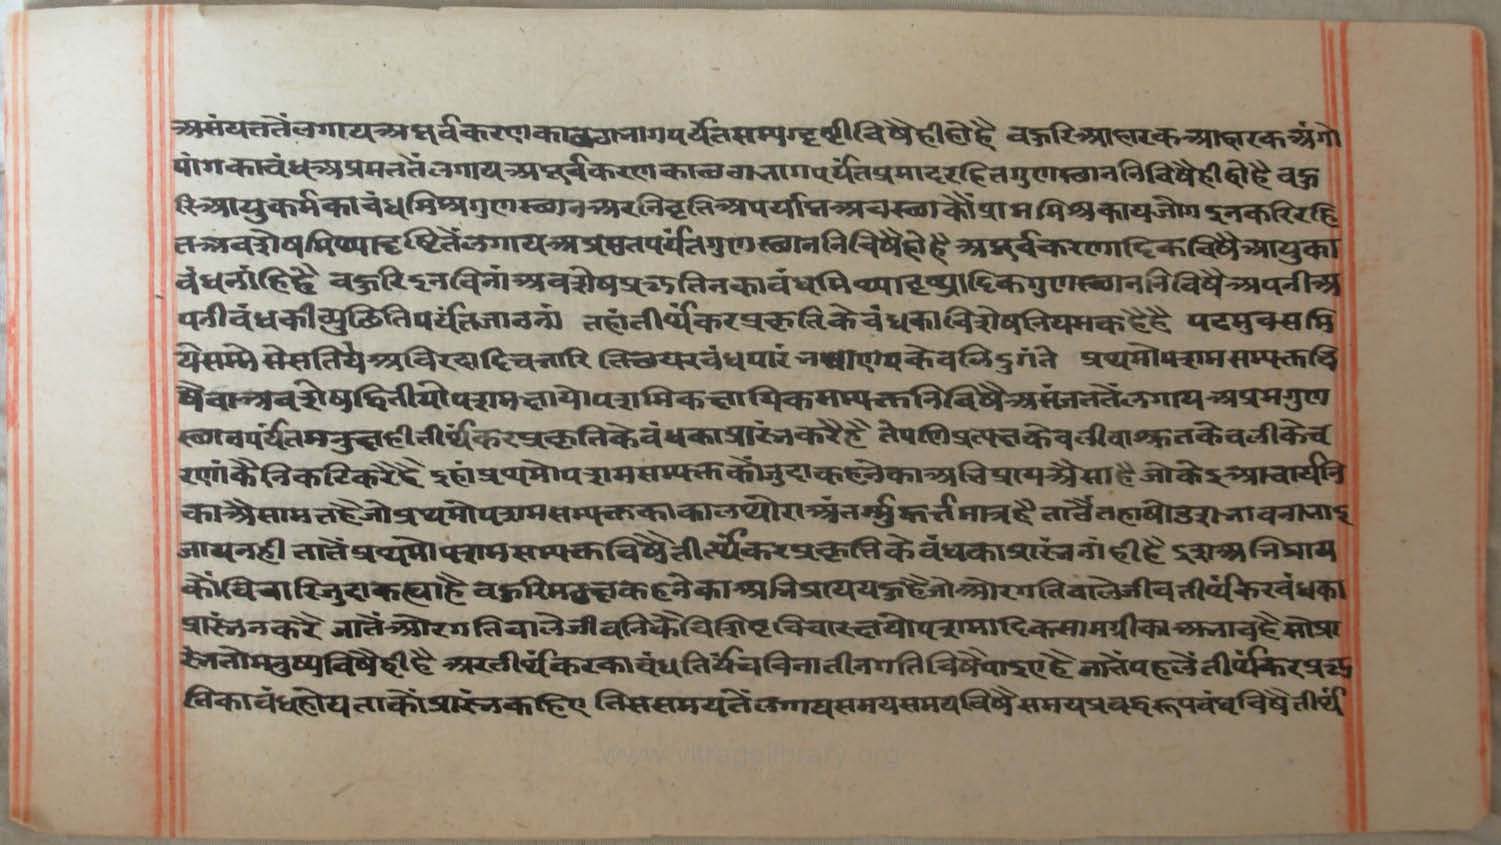 असंयततैं लगाय अपूर्वकरण का छठा भाग पर्यंत सम्यग्दृष्टी विषै ही हो है वहुरि आहारक आहारक अंगो
पांग का वंध अप्रमत्ततें लगाय अपूर्वकरण का छठा भाग पर्यंत प्रमाद रहित गुणस्थाननि विषै ही हो है वहु
रि आयु कर्म का वंध मिश्र गुणस्थान अर निवृति अपर्याप्त अवस्था कौं प्राप्त मिश्र काय जोग इन करि रहि
त अवशेष मिथ्यादृष्टितैं लगाय अप्रमत्त पर्यंत गुणस्थाननि विषै हो है अपूर्वकरणादिक विषै आयु का
वंध नांहि है वहुरि इन विनां अवशेष प्रकृतिन का वंध मिथ्यादृष्ट्यादिक गुणस्थाननि विषै अपनी अ
पनी वंध की व्युछिति पर्यंत जाननां तहां तीर्थंकर प्रकृति के वंध का विशेष नियम कहै है पढमुवसमि
ये सम्मे सेसतिये अविरदादिचत्तारि तित्थयरवंधपारं केवलिदुगंते प्रथमोपशम सम्यक्त वि
षै वा अवशेष द्वितीयोपशम क्षायोपशमिक क्षायिक सम्यक्तनि विषै असंजततैं लगाय अप्रम गुण
स्थान पर्यंत मनुष्य ही तीर्थंकर प्रकृति के वंध का प्रारंभ करै है तेपणि प्रत्यक्ष केवली वा श्रुत केवली के च
रणां कै निकटि करै है इहां प्रथमोपशम सम्यक्त कौं जुदा कहने का अभिप्राय असा है जो केइ आचार्यनि
का असा मत है जो प्रथमोपशम सम्यक्त का काल थोरा अंतर्मुहूर्त मात्र है तातैं तहां षोडश भावना भाइ
जाय नही तातैं प्रथमोपशम सम्यक्त विषै तीर्थंकर प्रकृति के वंध का प्रारंभ नांही है इस अभिप्राय
कौं विचारि जुदा कह्या है वहुरि मनुष्य कहने का अभिप्राय यहु है जो और गति वाले जीव तीर्थंकर वंध का
प्रारंभ न करै जातैं और गति वाले जीवनि कै विशिष्ट विचार क्षयोपशमादिक सामग्री का अभाव है सो प्रा
रंभ तो मनुष्य विषै ही है अर तीर्थंकर का वंध तिर्यंच विना तीन गति विषै पाइए है जातें पहलैं तीर्थंकर प्रकृ
ति का वंध होय ताकौं प्रारंभ कहिए तिस समयतें लगाय समय समय विषै समयप्रवद्ध रूप वंध विषै तीर्थं
www.vitragelibrary.org